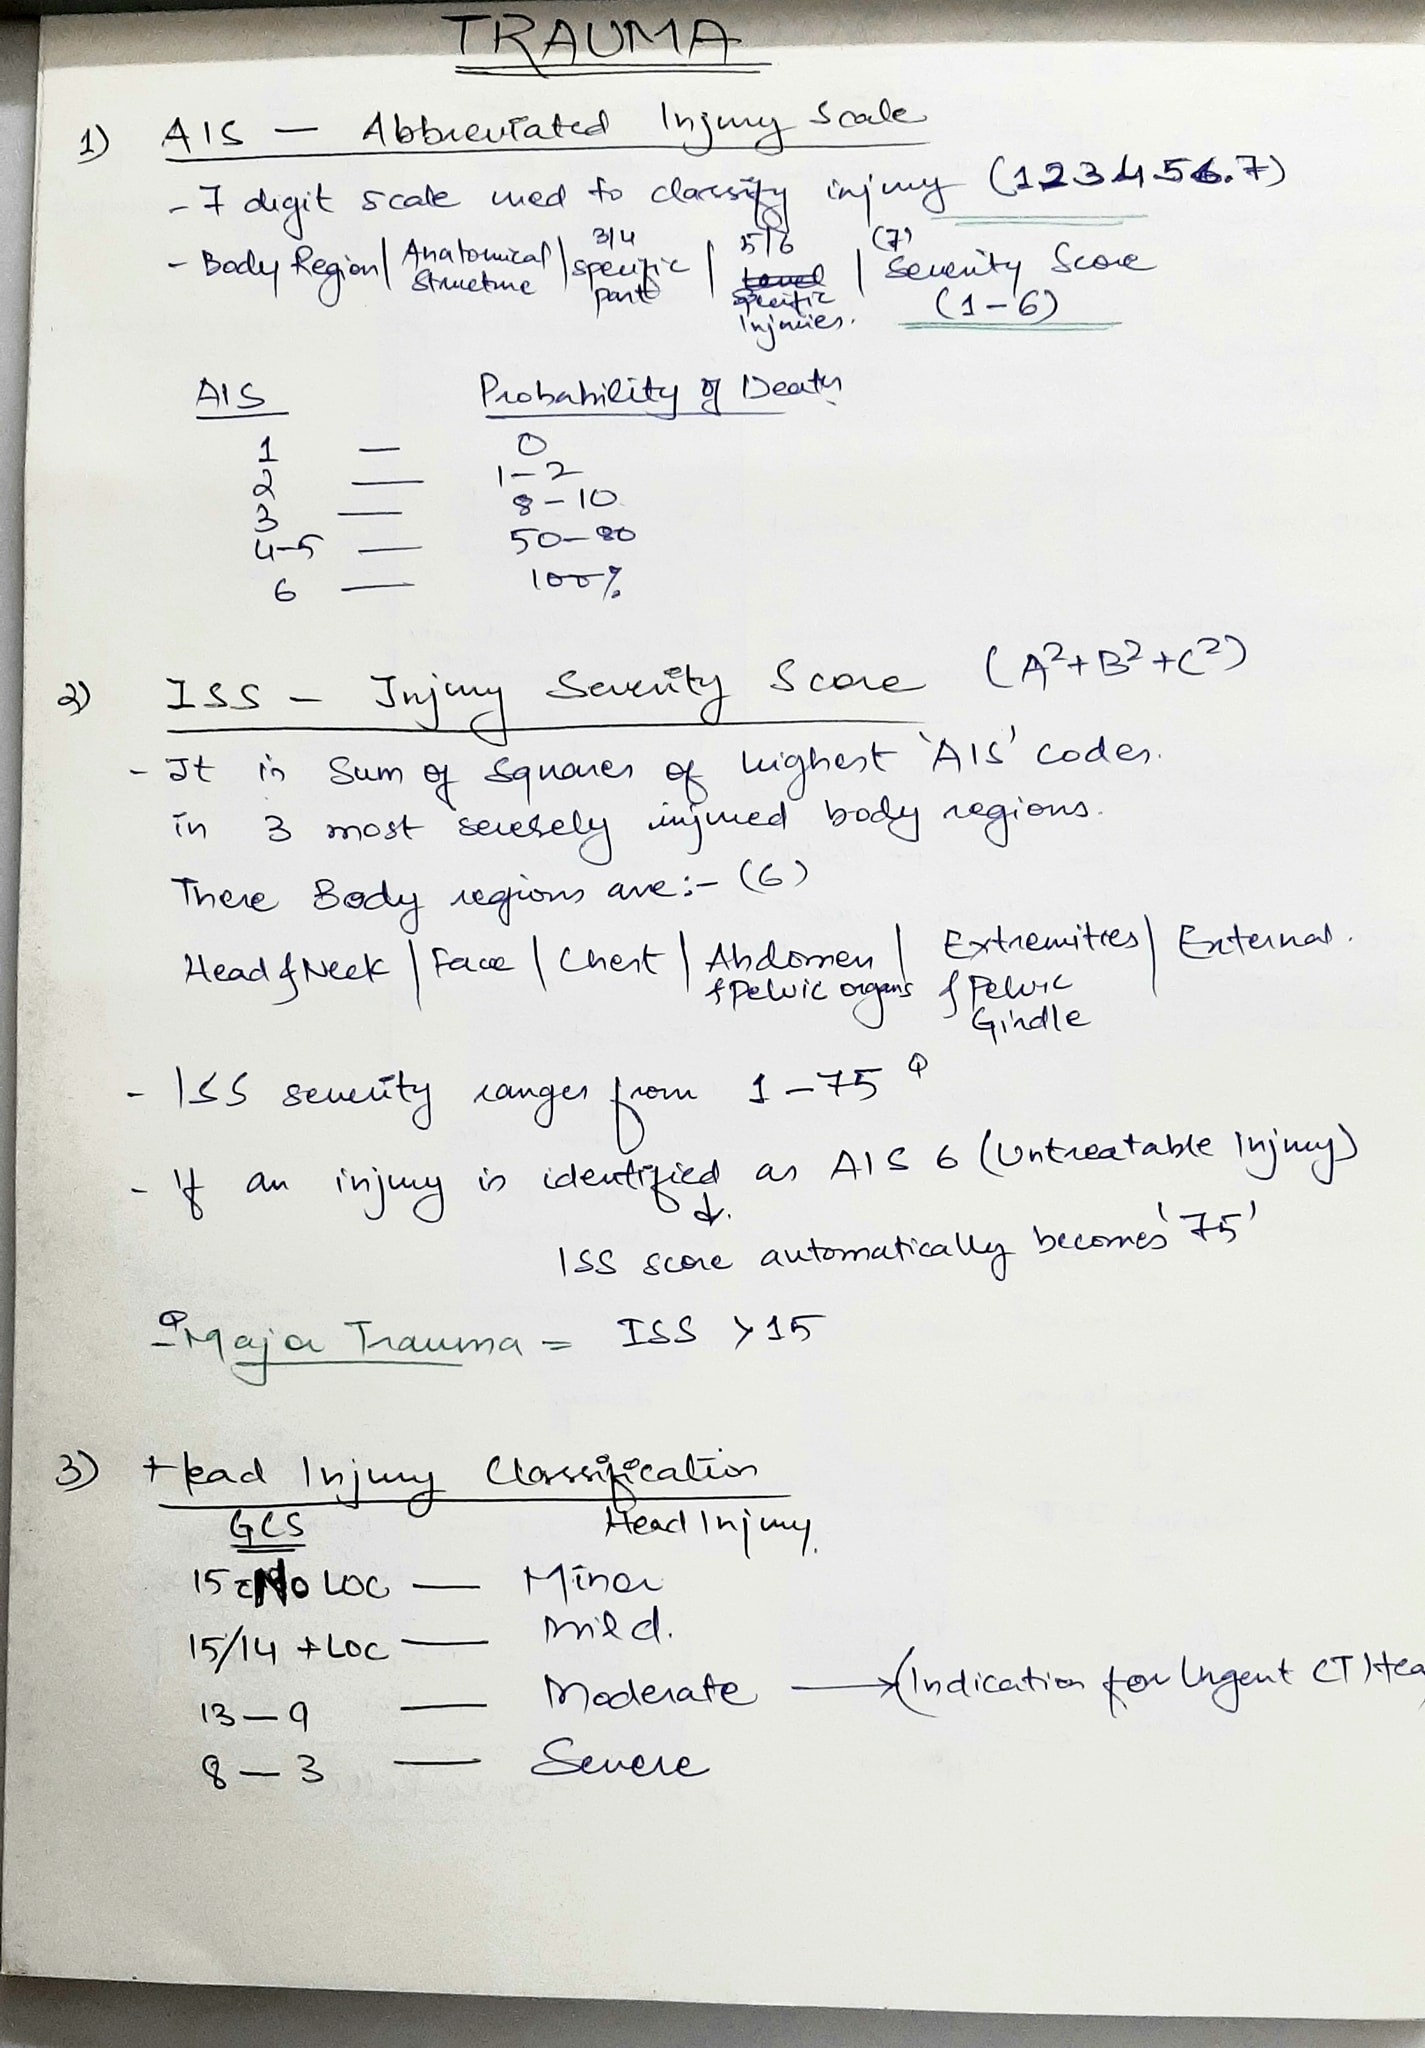 TRAUMA
1) AIS — Abbreviated Injury Scale
- 7 digit scale used to classify injury (123456.7)
3/4 5/6 (7)
- Body Region | Anatomical Structure | specific part | Specific Injuries. | Severity Score (1-6)
AIS Probability of Death
1 — 0
2 — 1-2
3 — 8-10
4-5 — 50-80
6 — 100%
2) ISS - Injury Severity Score (A²+B²+C²)
- It is Sum of Squares of highest 'AIS' codes.
in 3 most severely injured body regions.
There Body regions are:- (6)
Head & Neck | Face | Chest | Abdomen & Pelvic organs | Extremities & Pelvic Girdle | External.
- ISS severity ranges from 1-75
- If an injury is identified as AIS 6 (Untreatable Injury)
↓
ISS score automatically becomes '75'
- Major Trauma = ISS >15
3) Head Injury Classification
GCS Head Injury.
15 No LOC — Minor
15/14 + LOC — Mild.
13-9 — Moderate → (Indication for Urgent CT Hea
8-3 — Severe